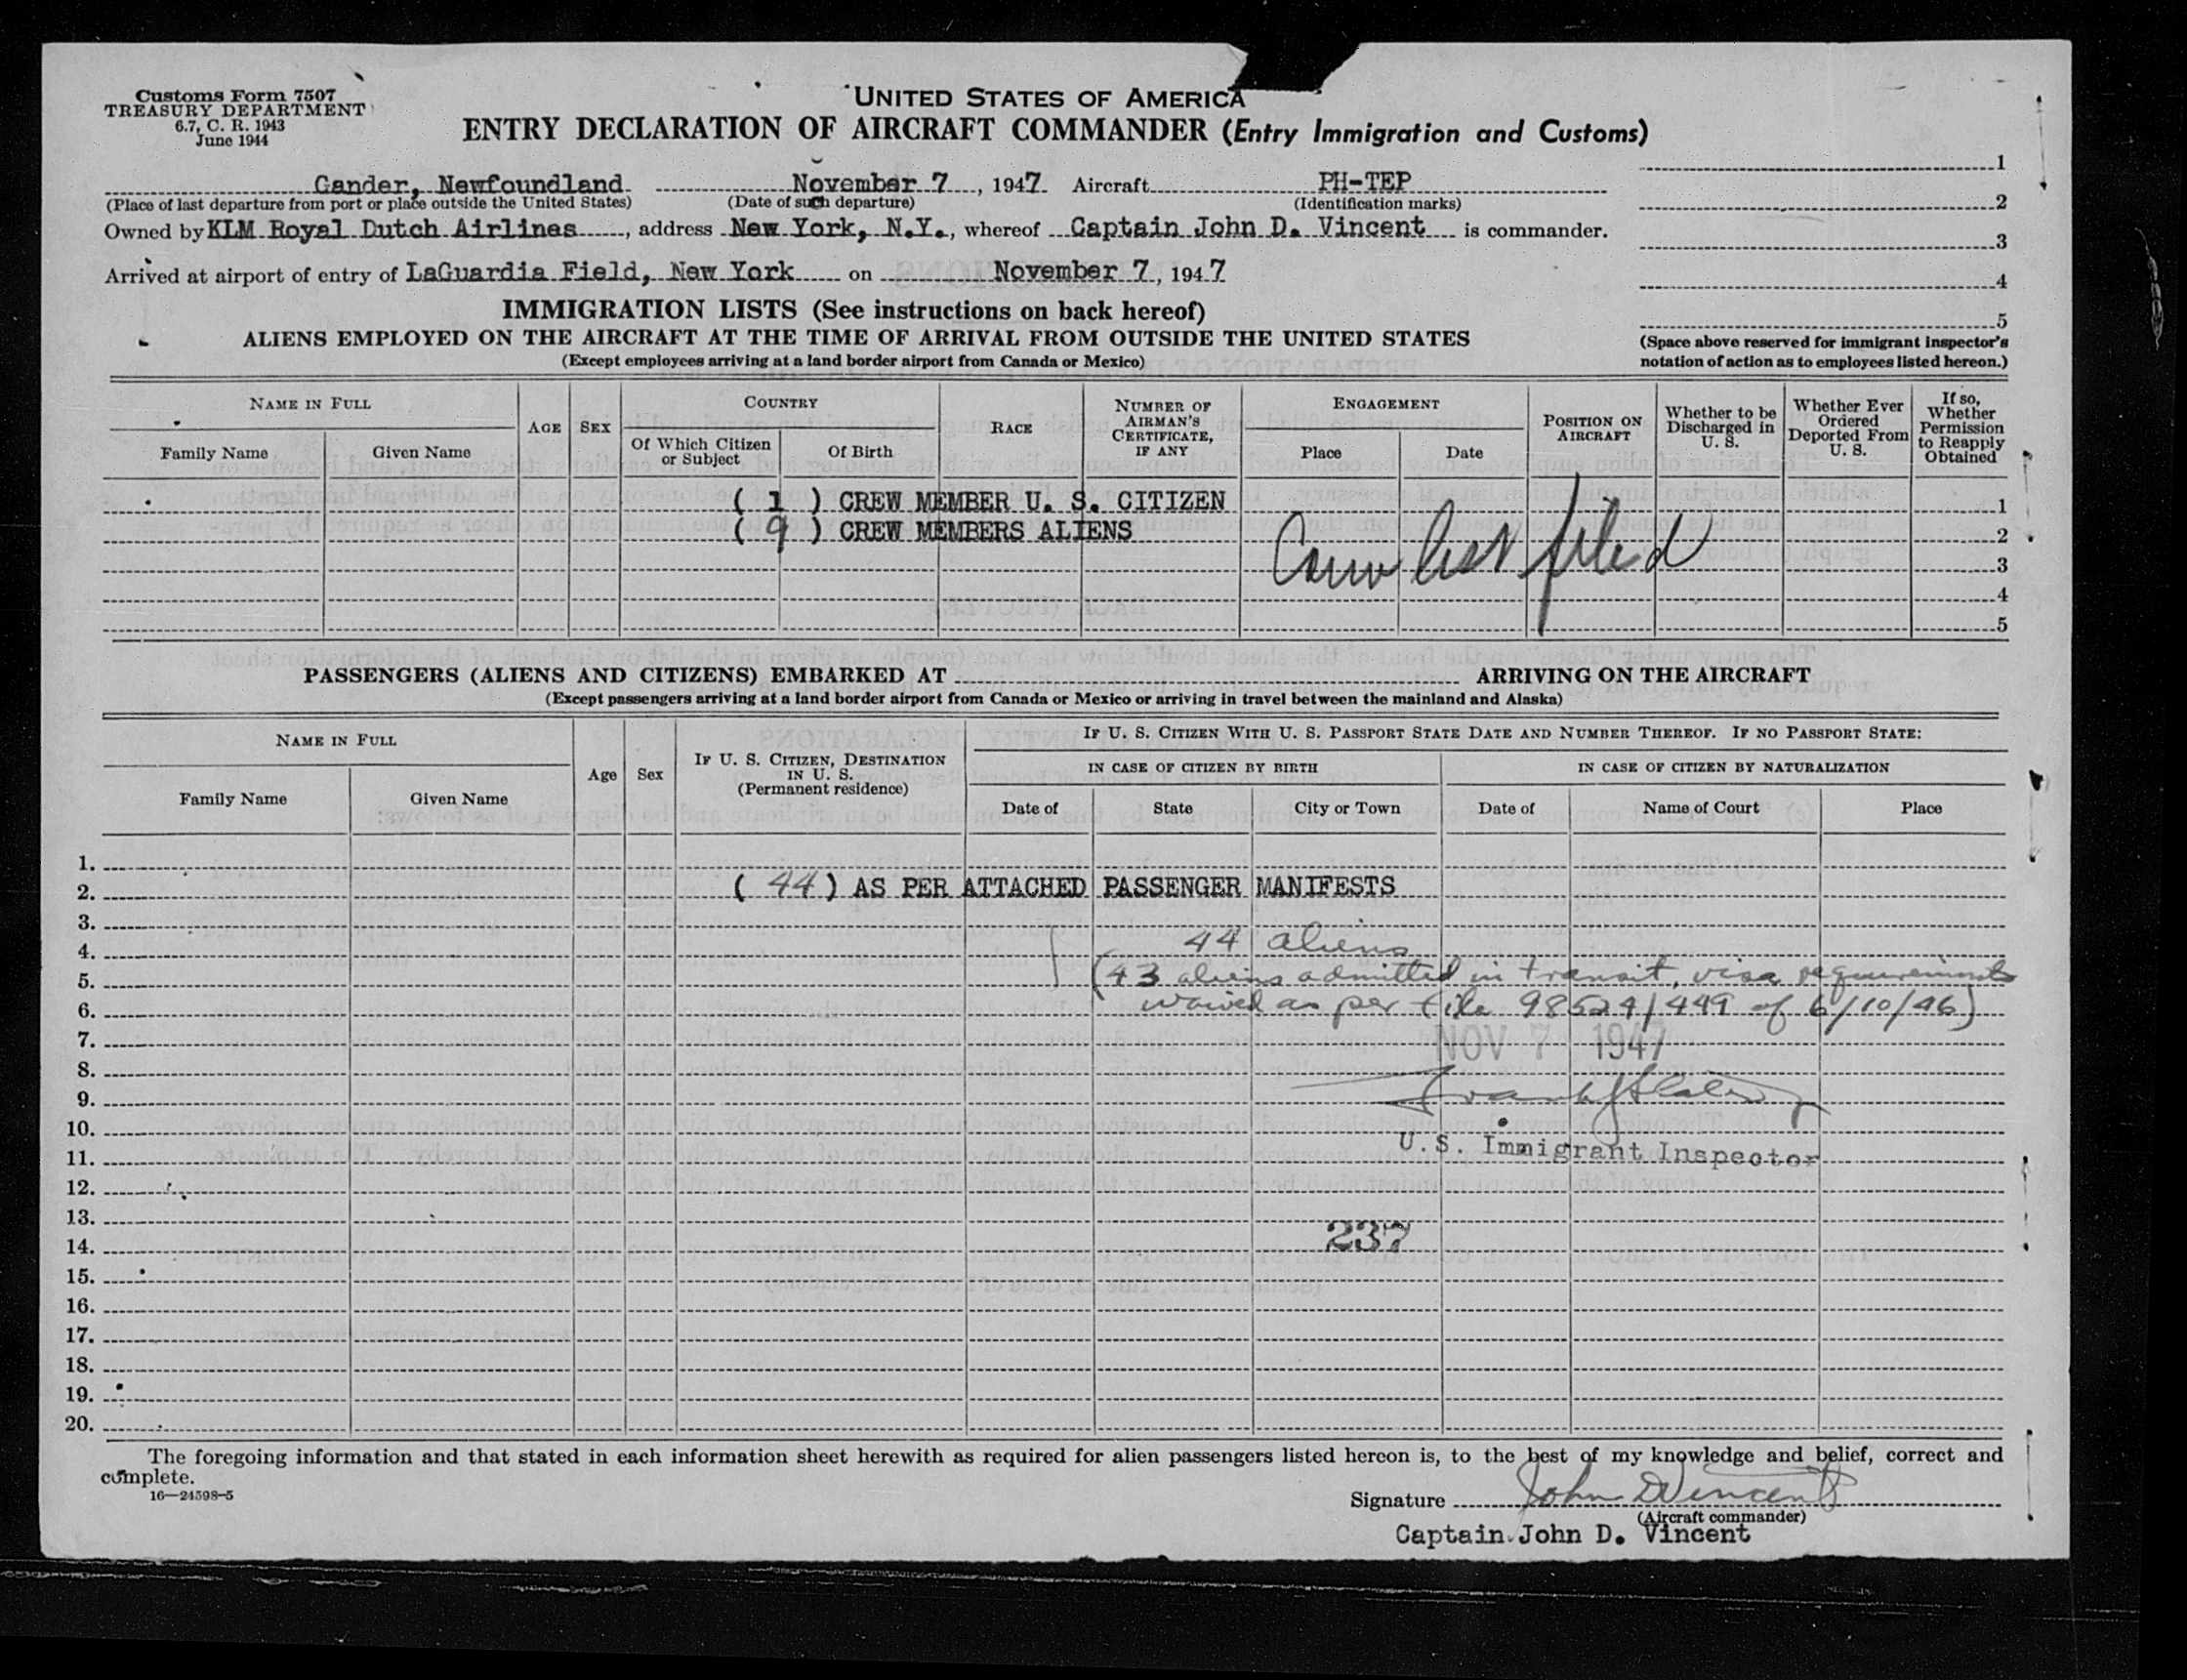 Customs Form 7507
TREASURY DEPARTMENT
6.7, C. R. 1943
June 1944
UNITED STATES OF AMERICA
ENTRY DECLARATION OF AIRCRAFT COMMANDER (Entry Immigration and Customs)
Gander, Newfoundland November 7, 1947 Aircraft PH-TEP
(Place of last departure from port or place outside the United States) (Date of such departure) (Identification marks)
Owned by KLM Royal Dutch Airlines, address New York, N.Y., whereof Captain John D. Vincent is commander.
Arrived at airport of entry of LaGuardia Field, New York on November 7, 1947
1
2
3
4
5
(Space above reserved for immigrant inspector's
notation of action as to employees listed hereon.)
IMMIGRATION LISTS (See instructions on back hereof)
ALIENS EMPLOYED ON THE AIRCRAFT AT THE TIME OF ARRIVAL FROM OUTSIDE THE UNITED STATES
(Except employees arriving at a land border airport from Canada or Mexico)
NAME IN FULL
Family Name
Given Name
AGE
SEX
COUNTRY
Of Which Citizen
or Subject
Of Birth
RACE
NUMBER OF
AIRMAN'S
CERTIFICATE,
IF ANY
ENGAGEMENT
Place
Date
POSITION ON
AIRCRAFT
Whether to be
Discharged in
U. S.
Whether Ever
Ordered
Deported From
U. S.
If so,
Whether
Permission
to Reapply
Obtained
( 1 ) CREW MEMBER U. S. CITIZEN 1
( 9 ) CREW MEMBERS ALIENS 2
Crew list filed 3
4
5
PASSENGERS (ALIENS AND CITIZENS) EMBARKED AT ARRIVING ON THE AIRCRAFT
(Except passengers arriving at a land border airport from Canada or Mexico or arriving in travel between the mainland and Alaska)
NAME IN FULL
Family Name
Given Name
Age
Sex
IF U. S. CITIZEN, DESTINATION
IN U. S.
(Permanent residence)
IF U. S. CITIZEN WITH U. S. PASSPORT STATE DATE AND NUMBER THEREOF. IF NO PASSPORT STATE:
IN CASE OF CITIZEN BY BIRTH
IN CASE OF CITIZEN BY NATURALIZATION
Date of
State
City or Town
Date of
Name of Court
Place
1.
2. ( 44 ) AS PER ATTACHED PASSENGER MANIFESTS
3.
4. 44 aliens
5. (43 aliens admitted in transit, visa requirements
6. waived as per file 98524/449 of 6/10/46)
7. NOV 7 1947
8.
9.
10.
11. U.S. Immigrant Inspector
12.
13.
14. 237
15.
16.
17.
18.
19.
20.
The foregoing information and that stated in each information sheet herewith as required for alien passengers listed hereon is, to the best of my knowledge and belief, correct and
complete.
16—24598-5
Signature John D Vincent
(Aircraft commander)
Captain John D. Vincent